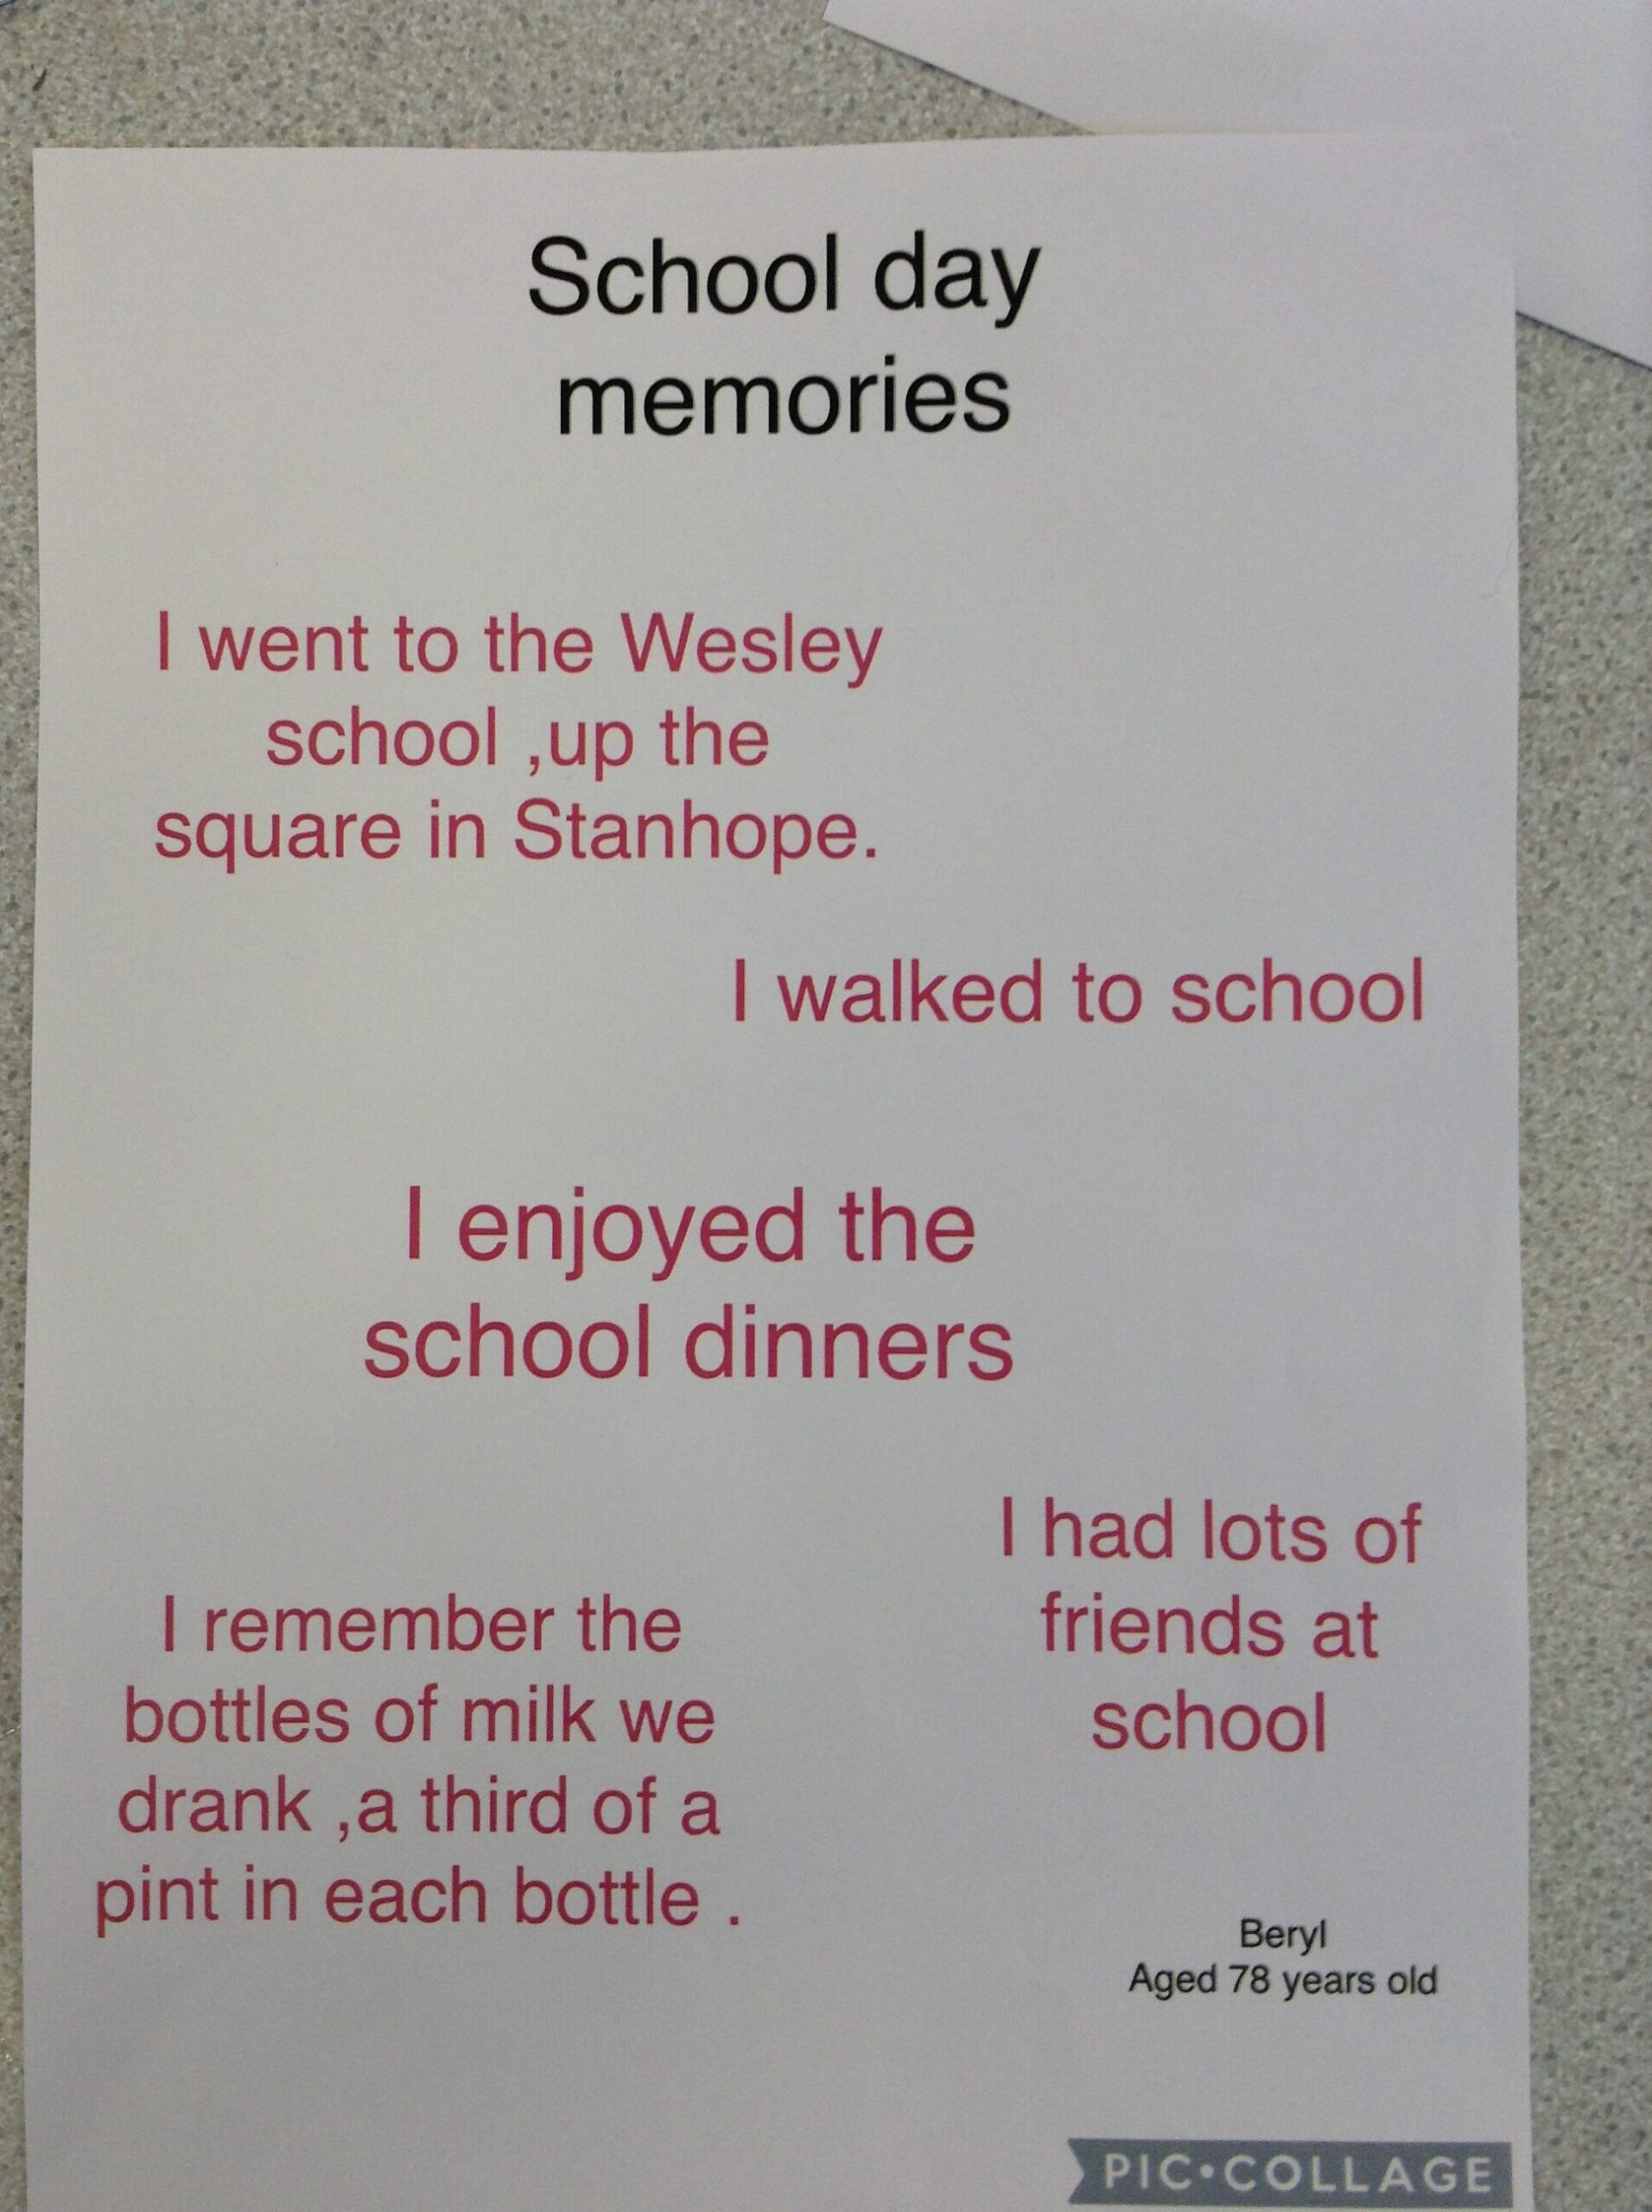 School day
memories
I went to the Wesley
school ,up the
square in Stanhope.
I walked to school
I enjoyed the
school dinners
I had lots of
friends at
school
I remember the
bottles of milk we
drank ,a third of a
pint in each bottle .
Beryl
Aged 78 years old
PIC•COLLAGE